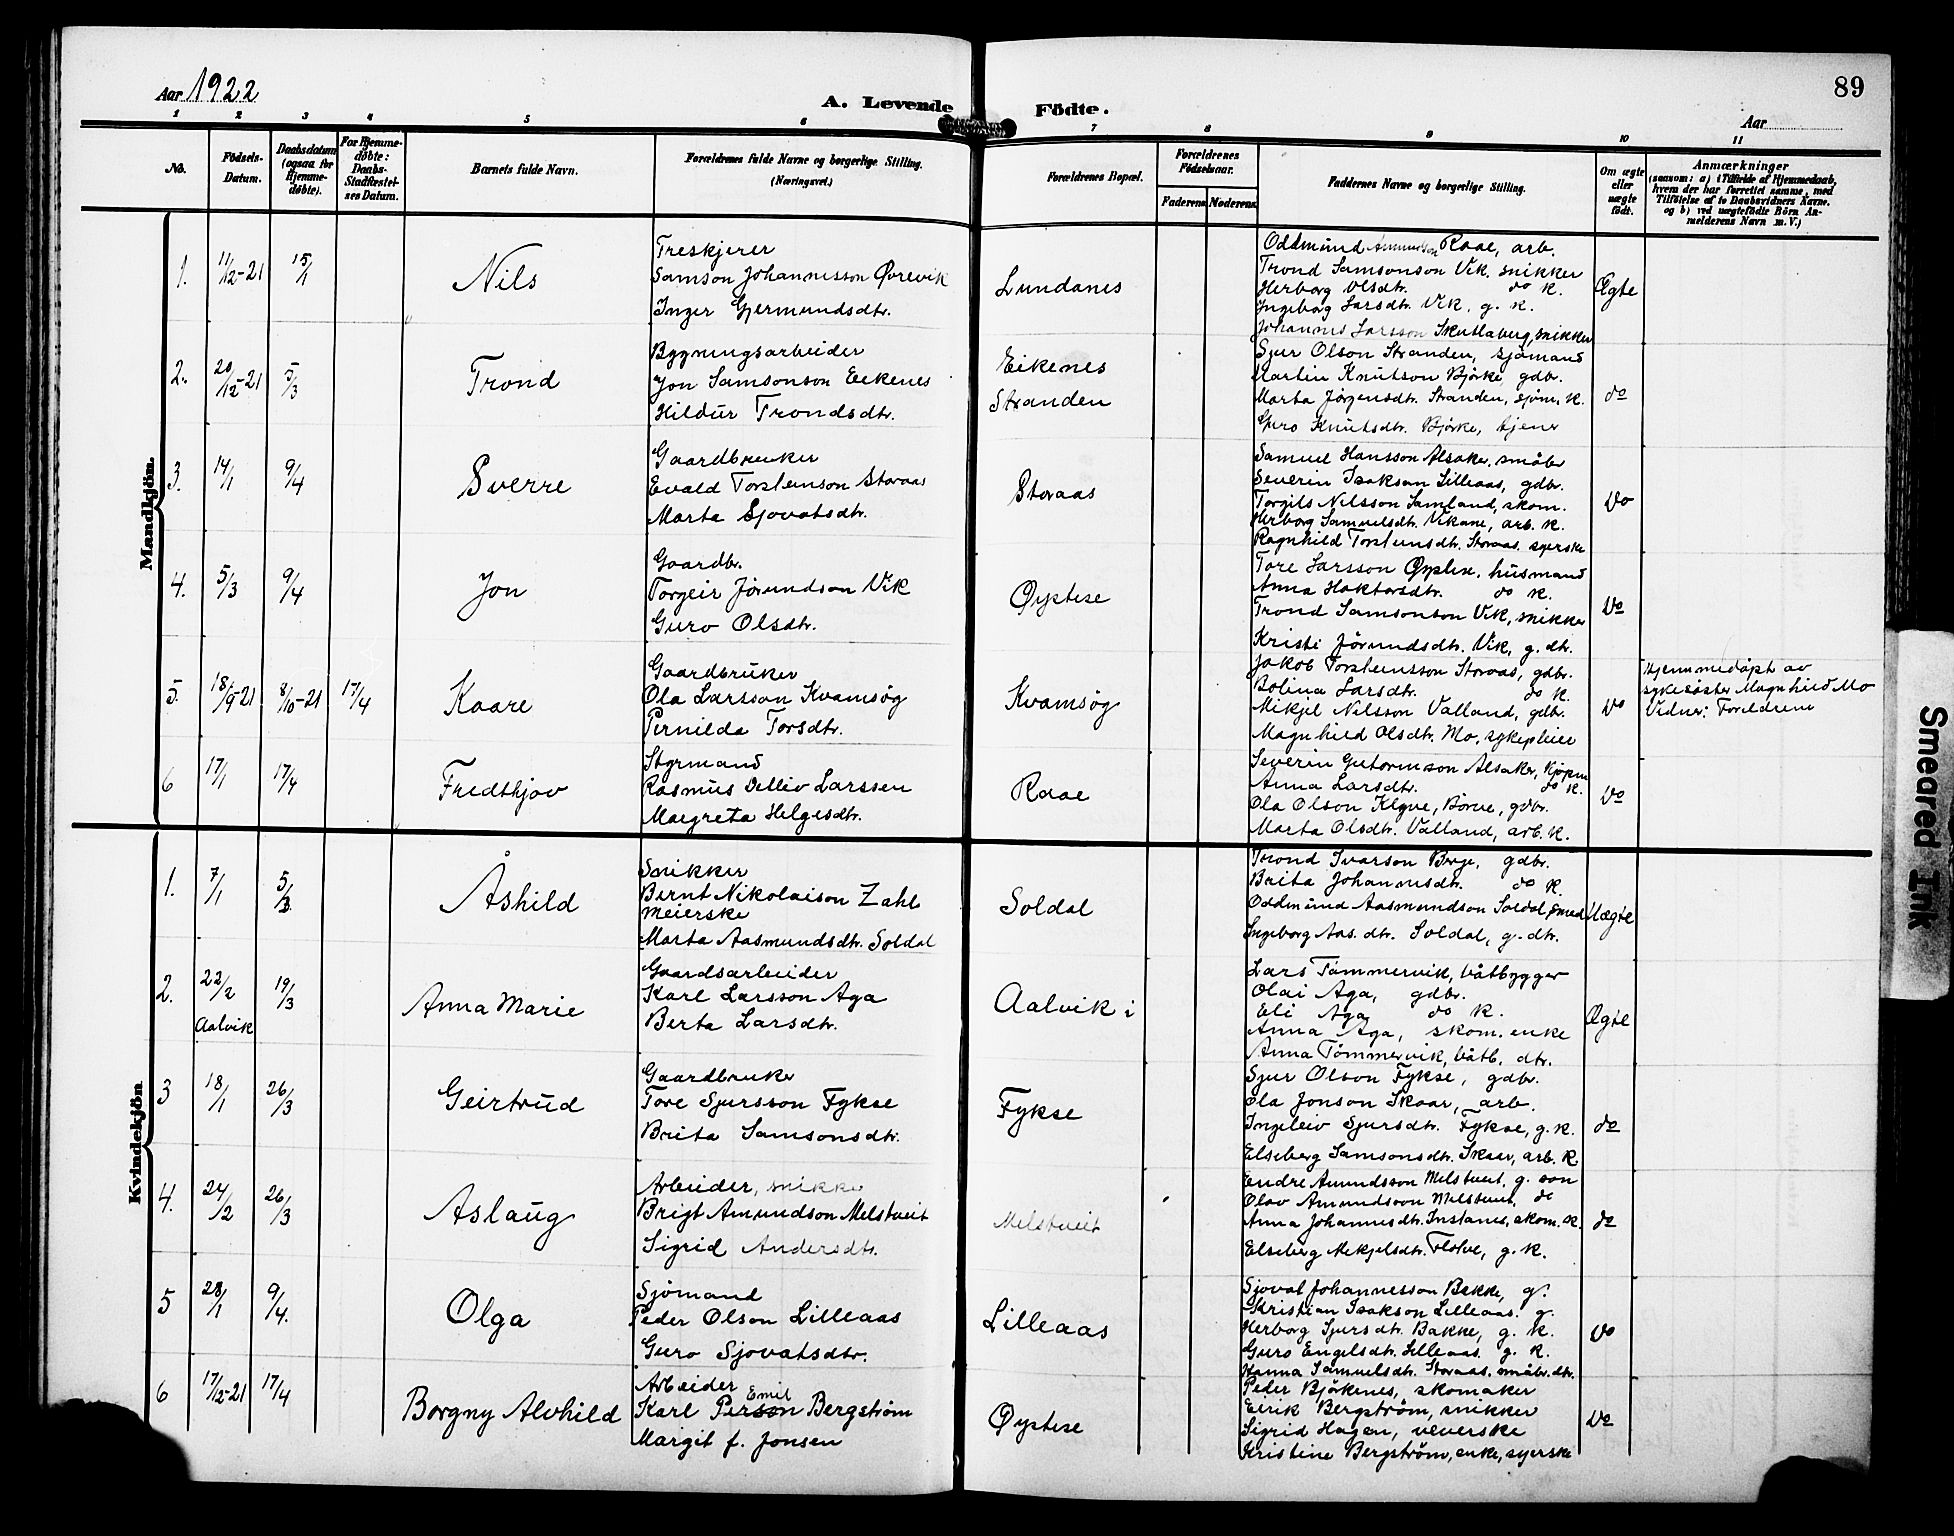 Aar 1922
A. Levende Födte.
89
Aar
1 2 3 4 5 6 7 8 9 10 11
No.
Födsels-Datum.
Daabsdatum (ogsaa for Hjemme-döbte).
For Hjemme-döbte: Daabs-Stadfæstel-ses Datum.
Barnets fulde Navn.
Forældrenes fulde Navne og borgerlige Stilling.
(Næringsvei.)
Forældrenes Bopæl.
Forældrenes Födselsaar.
Faderens Moderens
Faddernes Navne og borgerlige Stilling.
Om ægte eller uægte födt.
Anmærkninger
(saasom: a) i Tilfælde af Hjemmedaab, hvem der har forrettet samme, med Tilföielse af to Daabsvidners Navne, og b) ved uægtefödte Börn Anmelderens Navn m. V.)
Mandkjön.
1. 11/12-21 15/1 Nils
Treskjerer
Samson Johannesson Øvrevik
Inger Gjermundsdtr.
Lundanes
Oddmund Raae, arb.
Trond Samsonson Vik, snikker
Herborg Olsdtr. do k.
Ingeborg Larsdtr. Vik, g. k.
Johannes Larsson Skutlaberg, snikker
Ægte
2. 20/12-21 5/3 Trond
Bygningsarbeider
Jon Samsonson Eikenes
Hildur Trondsdtr.
Eikenes
Stranden
Sjur Olson Stranden, sjömand
Martin Knutson Björke, gdbr.
Marta Jörgensdtr. Stranden, sjöm. k.
Guro Knutsdtr. Björke, tjener
do
3. 14/1 9/4 Sverre
Gaardbruker
Evald Torsteinson Storaas
Marta Sjovatsdtr.
Storaas
Samuel Hansson Alsaker, småbr
Severin Isakson Lilleaas, gdbr.
Torgils Nilsson Samland, skom.
Herborg Samuelsdtr. Vikane, arb. k.
Ragnhild Torsteinsdtr. Storaas, syerske
do
4. 5/3 9/4 Jon
Gaardbr.
Torgeir Jörundson Vik
Guro Olsdtr.
Øystese
Tore Larsson Øystese, husmand
Anna Haktorsdtr. do k.
Trond Samsonson Vik, snikker
Kristi Jörundsdtr. Vik, g. dtr.
do
5. 18/9-21 8/10-21 17/4 Kaare
Gaardbruker
Ola Larsson Kvamsøg
Pernilda Torsdtr.
Kvamsøg
Jakob Torsteinsson Storaas, gdbr.
Bolina Larsdtr. do k.
Mikjel Nilsson Valland, gdbr.
Magnhild Olsdtr. Mo, sykepleier
do
Hjemmedöpt av
sykesöster Magnhild Mo
Vidner: Foreldrene
6 17/1 17/4 Fredthjov
Styrmand
Rasmus Detlev Larssen
Margreta Helgesdtr.
Raae
Severin Gutormson Alsaker, kjöpm
Anna Larsdtr. do k.
Ola Olson Klyve, Börve, gdbr.
Marta Olsdtr. Valland, arb. k.
do
Kvindekjön
1. 7/1 5/3 Åshild
Snikker
Bernt Nikolaison Zahl
Meierske
Marta Aasmundsdtr. Soldal
Soldal
Trond Ivarson Berge, gdbr.
Brita Johannesdtr. do k.
Oddmund Aasmundson Soldal, smed
Ingeborg Aas. dtr. Soldal, g. dtr.
Uægte
2. 22/2 19/3 Anna Marie
Aalvik
Gaardsarbeider
Karl Larsson Aga
Berta Larsdtr.
Aalvik i
Lars Tömmervik, båtbygger
Olai Aga, gdbr.
Eli Aga do k.
Anna Aga, skom. enke
Anna Tömmervik, båtb. dtr.
Ægte
3 18/1 26/3 Geirtrud
Gaardbruker
Tore Sjursson Fykse
Brita Samsonsdtr.
Fykse
Sjur Olson Fykse, gdbr.
Ola Jonson Skaar, arb.
Ingeleiv Sjursdtr. Fykse, g. k.
Elseberg Samsonsdtr. Skaar, arb. k.
do
4. 24/2 26/3 Aslaug
Arbeider, snikker
Brigt Amundson Melstveit
Sigrid Andersdtr.
Melstveit
Endre Amundsson Melstveit, g. son
Olav Amundson Melstveit, do
Anna Johannesdtr. Instanes, skom. k.
Elseberg Mikjelsdtr. Flotve, g. k.
do
5 28/1 9/4. Olga
Sjömand
Peder Olson Lilleaas
Guro Sjovatsdtr.
Lilleaas
Sjovat Johannesson Bakke, g.
Kristian Isakson Lilleaas. g.
Herborg Sjursdtr. Bakke, g. k.
Guro Engelsdtr. Lilleaas. g. k.
Hanna Samuelsdtr. Storaas, småbr. dtr.
do
6 17/12-21 17/4 Borgny Alvhild
Arbeider
Karl Person Emil Bergström
Margit f. Jonsen
Øystese
Peder Björkenes, skomaker
Eirik Bergström, snikker
Sigrid Hagen, veverske
Kristine Bergström, enke, syerske
do
Smeared Ink